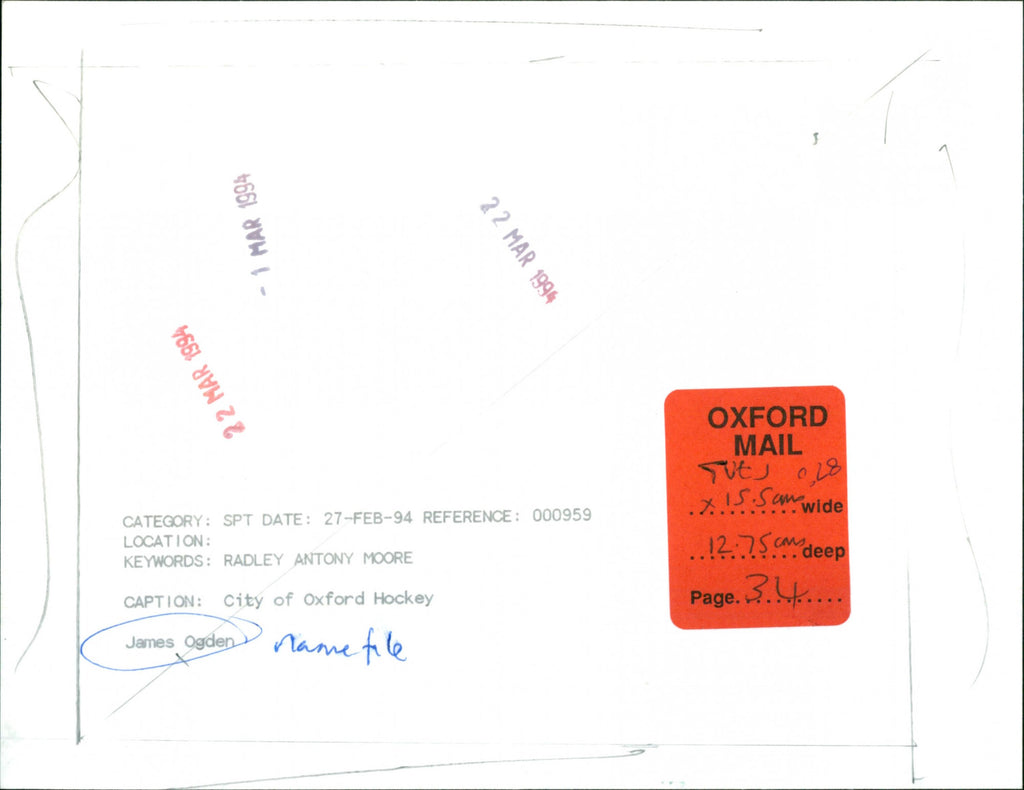 - 1 MAR 1994
22 MAR 1994
22 MAR 1994
OXFORD
MAIL
TUES
x 15.5cms wide
12.75cms deep
Page. 34
CATEGORY: SPT DATE: 27-FEB-94 REFERENCE: 000959
LOCATION:
KEYWORDS: RADLEY ANTONY MOORE
CAPTION: City of Oxford Hockey
James Ogden name file